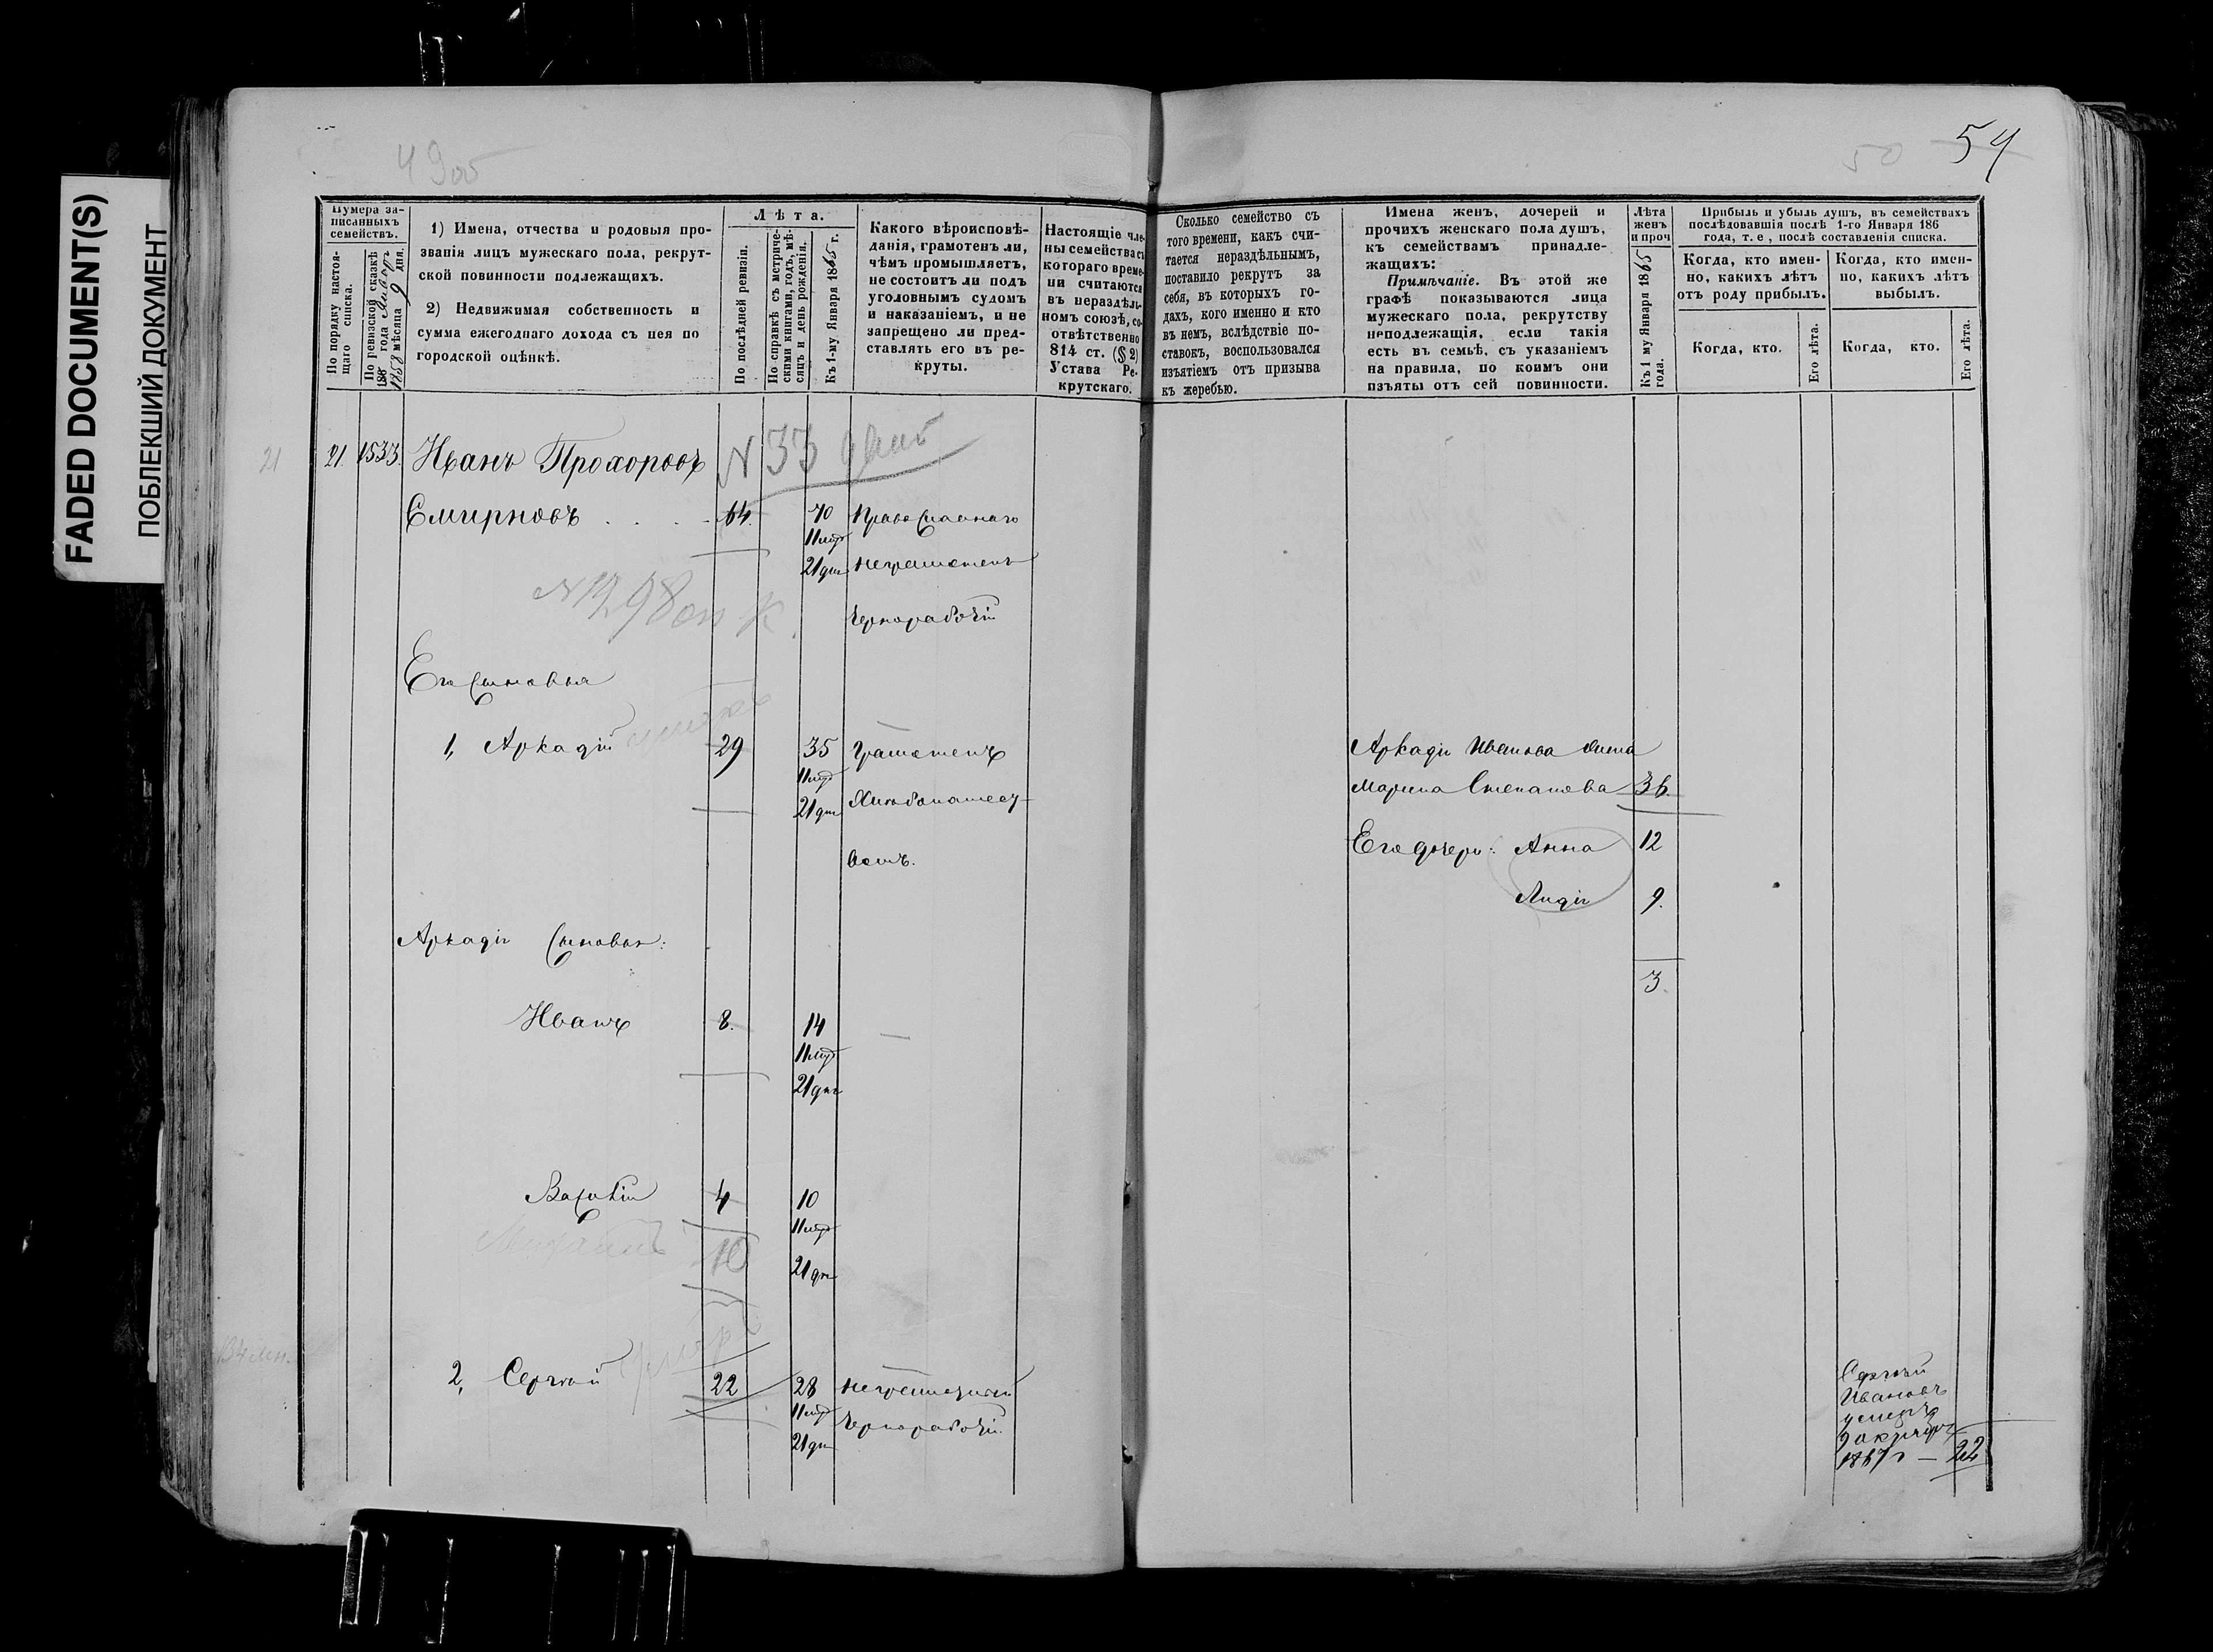 FADED DOCUMENT(S)
ПОБЛЕКШИЙ ДОКУМЕНТ
49об
50 54
Нумера за-
писанныхъ
семействъ.
По порядку настоя-
щаго списка.
По ревизской сказкѣ
1858 года Январь
мѣсяца 9 дня.
1) Имена, отчества и родовыя про-
званія лицъ мужескаго пола, рекрут-
ской повинности подлежащихъ.
2) Недвижимая собственность и
сумма ежегоднаго дохода съ нея по
городской оцѣнкѣ.
Лѣта.
По послѣдней ревизіи.
По справкѣ съ метриче-
скими книгами, годъ, мѣ-
сяцъ и день рожденія.
Къ 1-му Января 1865 г.
Какого вѣроисповѣ-
данія, грамотенъ ли,
чѣмъ промышляетъ,
не состоитъ ли подъ
уголовнымъ судомъ
и наказаніемъ, и не
запрещено ли пред-
ставлять его въ ре-
круты.
Настоящіе чле-
ны семейства съ
котораго време-
ни считаются
въ нераздѣль-
номъ союзѣ, со-
отвѣтственно
814 ст. (§ 2)
Устава Ре-
крутскаго.
Сколько семейство съ
того времени, какъ счи-
тается нераздѣльнымъ,
поставило рекрутъ за
себя, въ которыхъ го-
дахъ, кого именно и кто
въ немъ, вслѣдствіе по-
ставокъ, воспользовался
изъятіемъ отъ призыва
къ жеребью.
Имена женъ, дочерей и
прочихъ женскаго пола душъ,
къ семействамъ принадле-
жащихъ:
Примѣчаніе. Въ этой же
графѣ показываются лица
мужескаго пола, рекрутству
неподлежащія, если такія
есть въ семьѣ, съ указаніемъ
на правила, по коимъ они
изъяты отъ сей повинности.
Лѣта
женъ
и проч
Къ 1 му Января 1865
года.
Прибыль и убыль душъ, въ семействахъ
послѣдовавшія послѣ 1-го Января 186
года, т. е, послѣ составленія списка.
Когда, кто имен-
но, какихъ лѣтъ
отъ роду прибылъ.
Когда, кто имен-
но, какихъ лѣтъ
выбылъ.
Когда, кто.
Его лѣта.
Когда, кто.
Его лѣта.
21 21. 1533. Иванъ Прохоровъ N 33
Смирновъ . . . . 64. 70 Православнаго
11 мѣс
21 дн неграмотенъ
N 1298
чернорабочій
Его сыновья
1, Аркадій 29 35 грамотенъ
11 мѣс
21 дн Хлѣбопашест-
вомъ.
Аркадія Иванова жена
Марина Степанова 36.
Его дочери: Анна 12
Лидія 9.
3.
Аркадія сыновья:
Иванъ 8. 14
11 мѣс
21 дня
Василій 4 10
11 мѣс
Михаилъ 10
21 дн
2, Сергѣй 22 28 неграмотный
11 мѣс чернорабочій.
21 дн
Сергѣй
Ивановъ
умеръ
1867 г — 22